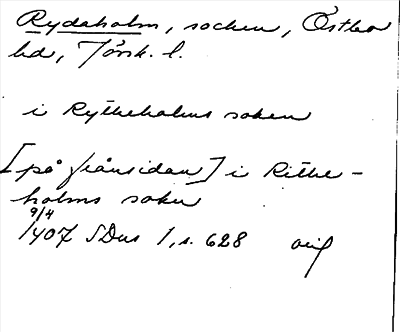 Rydaholm, socken, Östbo
hd, Jönk. l.
i Rytheholms soken
[på frånsidan] i Rithe-
holms sokn
9/4
1407 SDns 1, s. 628